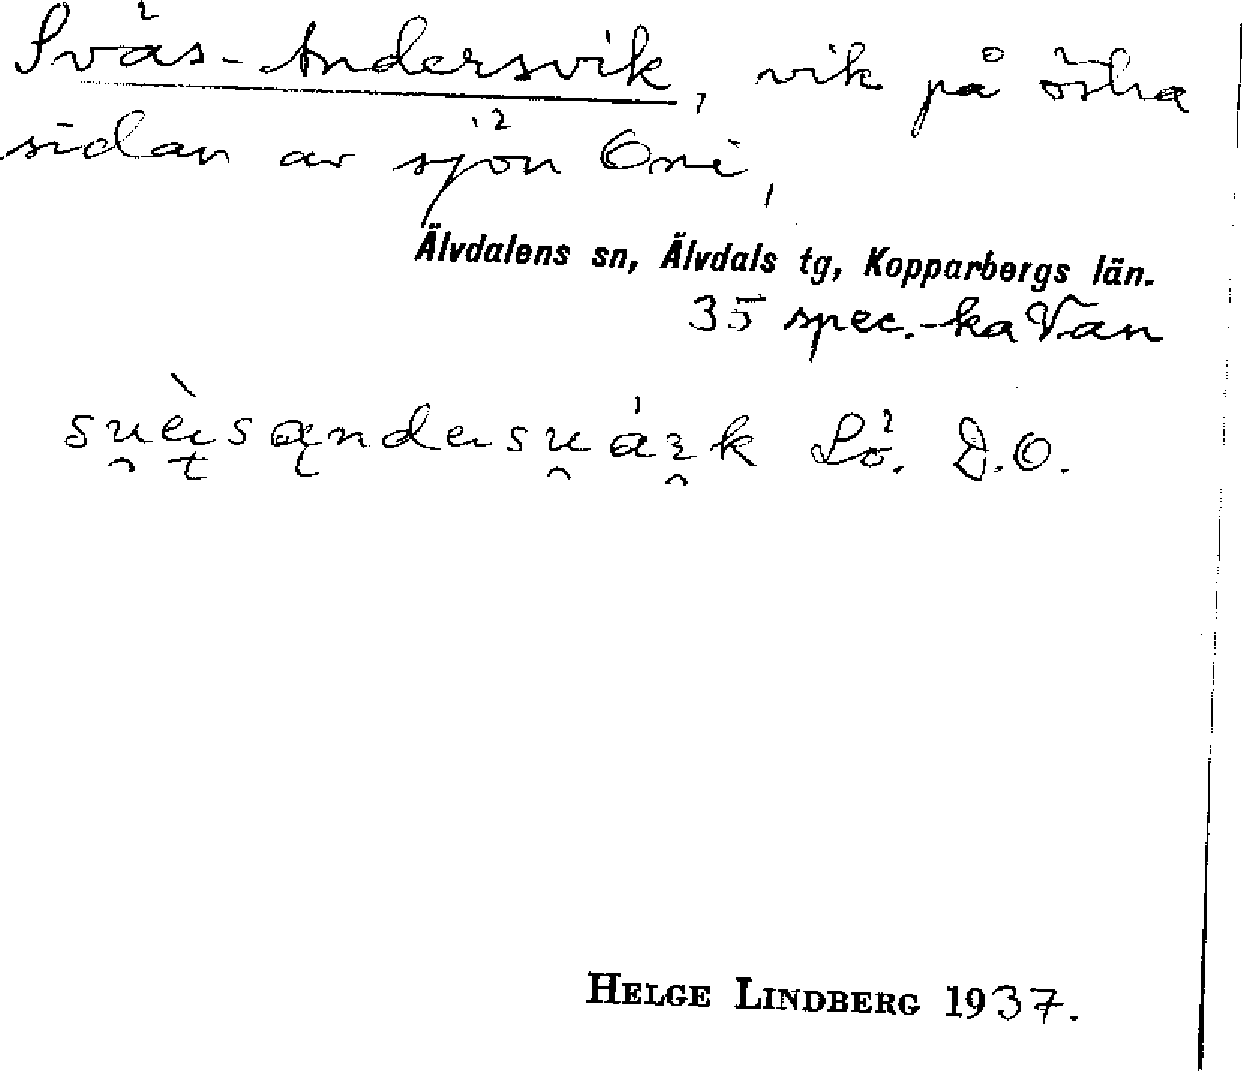 Sväs-Andersvik, vik på östra
sidan av sjön Orsi,
Älvdalens sn, Älvdals tg, Kopparbergs län.
35 spec.-ka Van
Lö. D.O.
HELGE LINDBERG 1937.